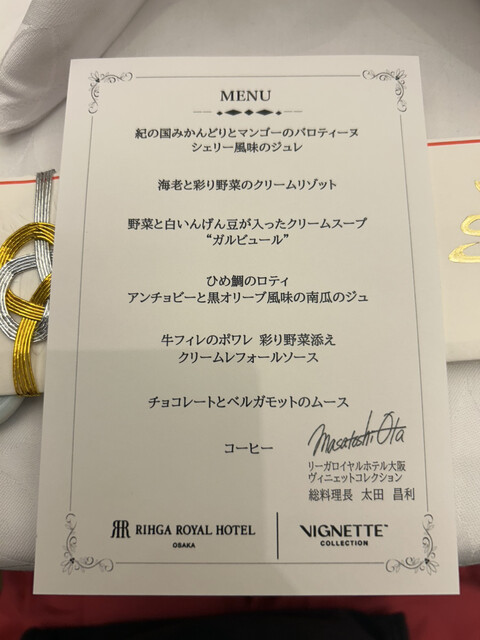 MENU
紀の国みかんどりとマンゴーのバロティーヌ
シェリー風味のジュレ
海老と彩り野菜のクリームリゾット
野菜と白いんげん豆が入ったクリームスープ
“ガルビュール”
ひめ鯛のロティ
アンチョビーと黒オリーブ風味の南瓜のジュ
牛フィレのポワレ 彩り野菜添え
クリームレフォールソース
チョコレートとベルガモットのムース
コーヒー
Masatoshi Ota
リーガロイヤルホテル大阪
ヴィニェットコレクション
総料理長 太田 昌利
RIHGA ROYAL HOTEL
OSAKA
VIGNETTE
COLLECTION